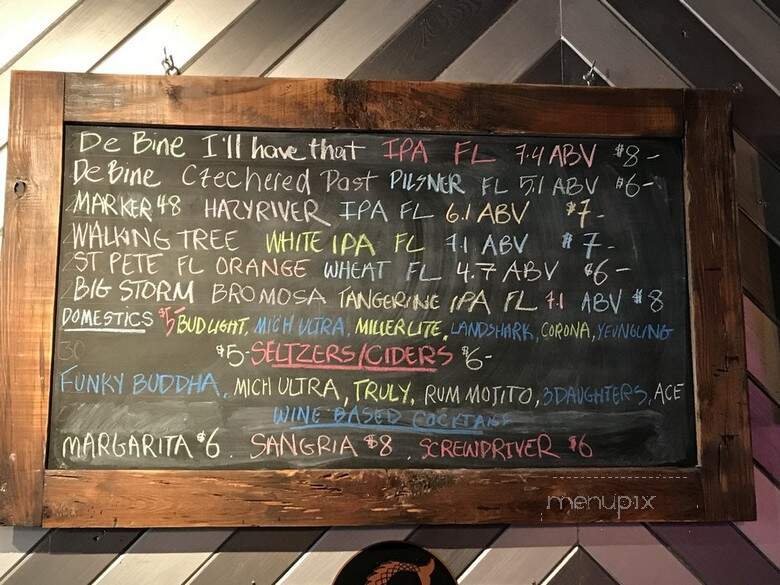 De Bine I'll have that IPA FL 7.4 ABV $8-
De Bine Czechered Past PILSNER FL 5.1 ABV $6-
MARKER 48 HAZY RIVER IPA FL 6.1 ABV $7-
WALKING TREE WHITE IPA FL 7.1 ABV $7-
ST PETE FL ORANGE WHEAT FL 4.7 ABV $6-
BIG STORM BROMOSA TANGERINE IPA FL 7.1 ABV $8
DOMESTICS $5- BUD LIGHT, MICH ULTRA, MILLER LITE, LANDSHARK, CORONA, YEUNGLING
$5- SELTZERS/CIDERS $6-
FUNKY BUDDHA, MICH ULTRA, TRULY, RUM MOJITO, 3 DAUGHTERS, ACE
WINE BASED COCKTAILS
MARGARITA $6. SANGRIA $8. SCREWDRIVER $6
menupix